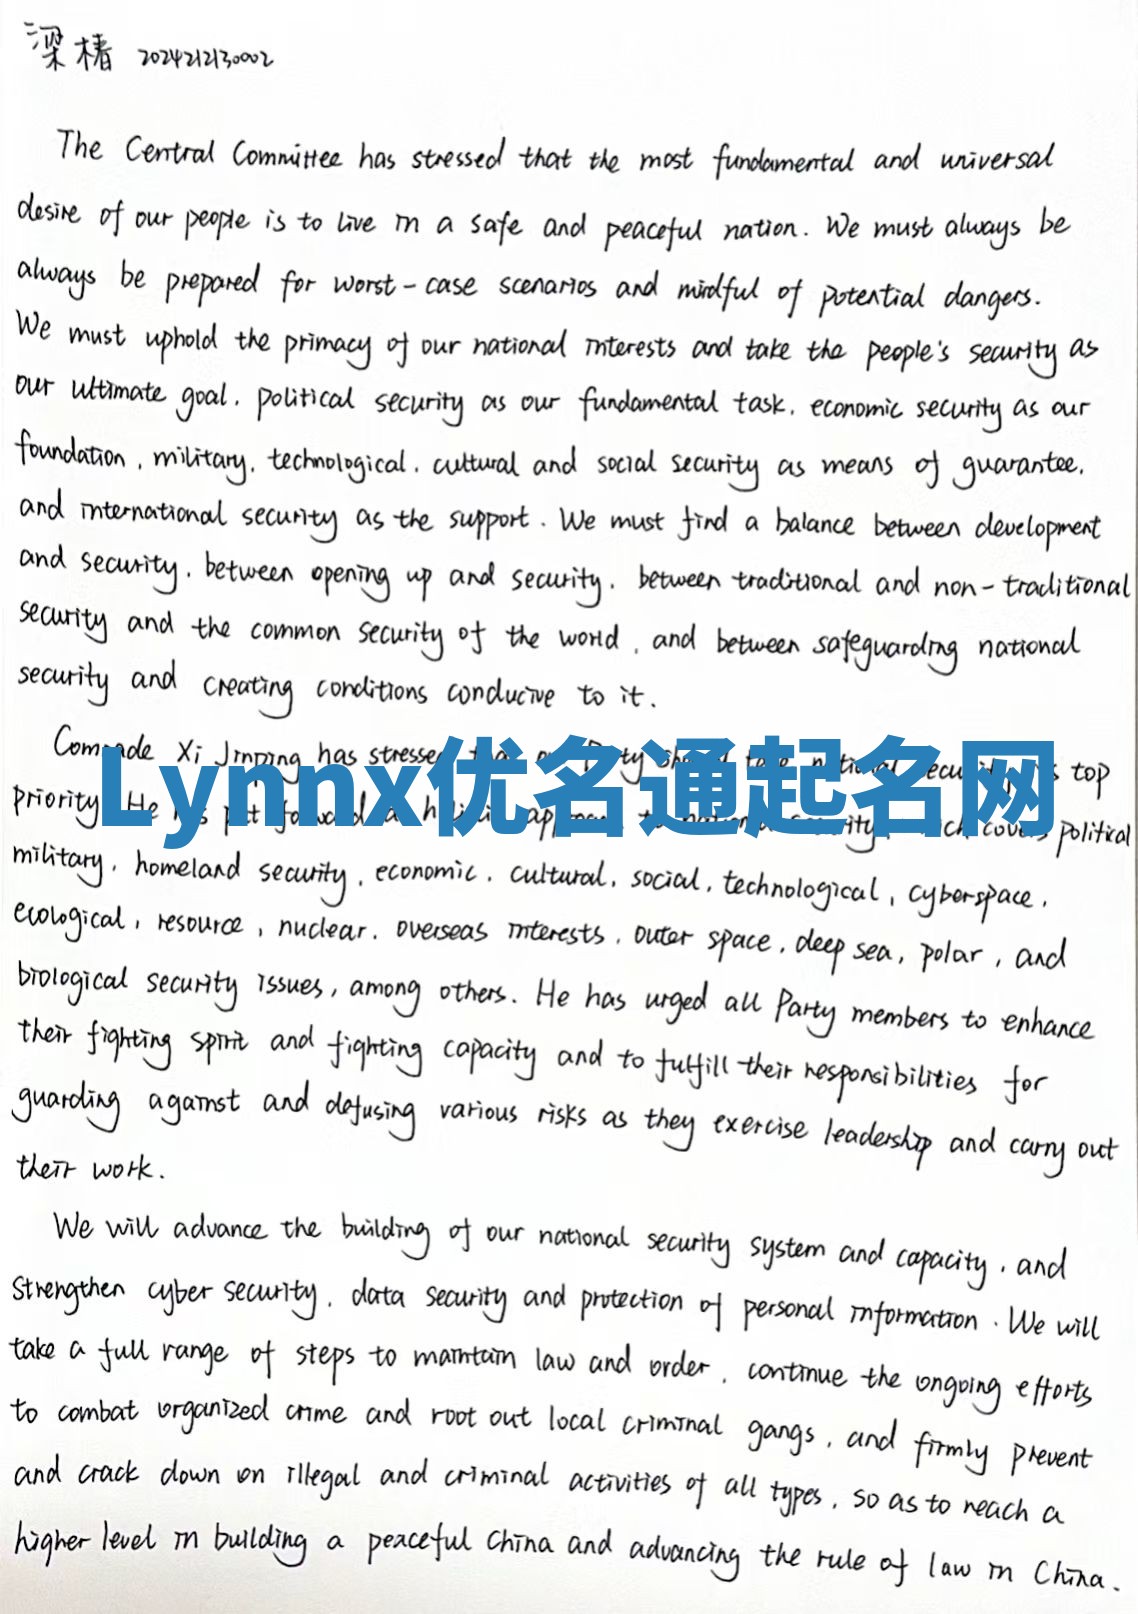 梁椿 2024212130002
The Central Committee has stressed that the most fundamental and universal
desire of our people is to live in a safe and peaceful nation. We must always be
always be prepared for worst-case scenarios and mindful of potential dangers.
We must uphold the primacy of our national interests and take the people's security as
our ultimate goal, political security as our fundamental task, economic security as our
foundation, military, technological, cultural and social security as means of guarantee,
and international security as the support. We must find a balance between development
and security, between opening up and security, between traditional and non-traditional
security and the common security of the world, and between safeguarding national
security and creating conditions conducive to it.
Comrade Xi Jinping has stressed top
priority. He political
Lynnx优名通起名网
military, homeland security, economic, cultural, social, technological, cyberspace,
ecological, resource, nuclear, overseas interests, outer space, deep sea, polar, and
biological security issues, among others. He has urged all Party members to enhance
their fighting spirit and fighting capacity and to fulfill their responsibilities for
guarding against and defusing various risks as they exercise leadership and carry out
their work.
We will advance the building of our national security system and capacity, and
strengthen cyber security, data security and protection of personal information. We will
take a full range of steps to maintain law and order, continue the ongoing efforts
to combat organized crime and root out local criminal gangs, and firmly prevent
and crack down on illegal and criminal activities of all types, so as to reach a
higher level in building a peaceful China and advancing the rule of law in China.